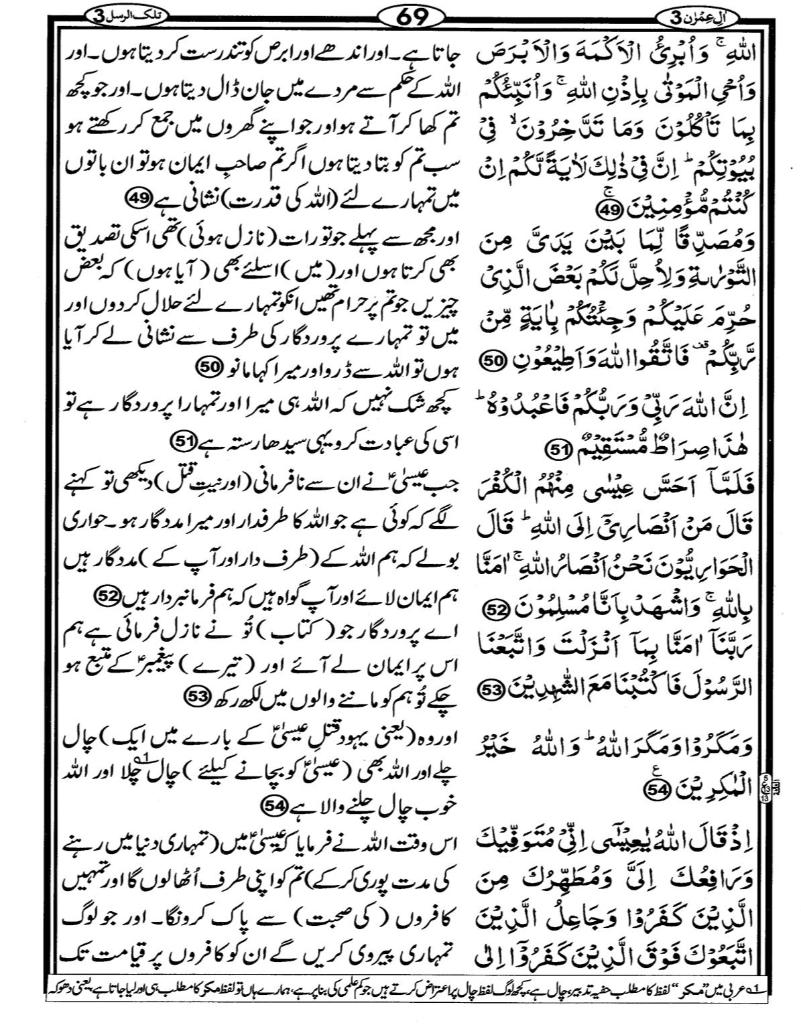 اٰل عِمْرٰن 3
69
تلك الرسل 3
اللّٰهِ ۚ وَاُبْرِئُ الْاَكْمَهَ وَالْاَبْرَصَ
وَاُحْىِ الْمَوْتٰى بِاِذْنِ اللّٰهِ ۚ وَاُنَبِّئُكُمْ
بِمَا تَاْكُلُوْنَ وَمَا تَدَّخِرُوْنَ ۙ فِىْ
بُيُوْتِكُمْ ؕ اِنَّ فِىْ ذٰلِكَ لَاٰيَةً لَّكُمْ اِنْ
كُنْتُمْ مُّؤْمِنِيْنَ ۚ 49
وَمُصَدِّقًا لِّمَا بَيْنَ يَدَىَّ مِنَ
التَّوْرٰىةِ وَلِاُحِلَّ لَكُمْ بَعْضَ الَّذِىْ
حُرِّمَ عَلَيْكُمْ وَجِئْتُكُمْ بِاٰيَةٍ مِّنْ
رَّبِّكُمْ ۗ فَاتَّقُوا اللّٰهَ وَاَطِيْعُوْنِ 50
اِنَّ اللّٰهَ رَبِّىْ وَرَبُّكُمْ فَاعْبُدُوْهُ ؕ
هٰذَا صِرَاطٌ مُّسْتَقِيْمٌ 51
فَلَمَّآ اَحَسَّ عِيْسٰى مِنْهُمُ الْكُفْرَ
قَالَ مَنْ اَنْصَارِىْٓ اِلَى اللّٰهِ ؕ قَالَ
الْحَوَارِيُّوْنَ نَحْنُ اَنْصَارُ اللّٰهِ ۚ اٰمَنَّا
بِاللّٰهِ ۚ وَاشْهَدْ بِاَنَّا مُسْلِمُوْنَ 52
رَبَّنَآ اٰمَنَّا بِمَآ اَنْزَلْتَ وَاتَّبَعْنَا
الرَّسُوْلَ فَاكْتُبْنَا مَعَ الشّٰهِدِيْنَ 53
وَمَكَرُوْا وَمَكَرَ اللّٰهُ ؕ وَاللّٰهُ خَيْرُ
الْمٰكِرِيْنَ ع 54
اِذْ قَالَ اللّٰهُ يٰعِيْسٰٓى اِنِّىْ مُتَوَفِّيْكَ
وَرَافِعُكَ اِلَىَّ وَمُطَهِّرُكَ مِنَ
الَّذِيْنَ كَفَرُوْا وَجَاعِلُ الَّذِيْنَ
اتَّبَعُوْكَ فَوْقَ الَّذِيْنَ كَفَرُوْٓا اِلٰى
جاتا ہے۔ اور اندھے اور ابرص کو تندرست کر دیتا ہوں۔ اور
اللہ کے حکم سے مردے میں جان ڈال دیتا ہوں۔ اور جو کچھ
تم کھا کر آتے ہو اور جو اپنے گھروں میں جمع کر رکھتے ہو
سب تم کو بتا دیتا ہوں اگر تم صاحبِ ایمان ہو تو ان باتوں
میں تمہارے لئے (اللہ کی قدرت) نشانی ہے 49
اور مجھ سے پہلے جو تورات (نازل ہوئی) تھی اسکی تصدیق
بھی کرتا ہوں اور (میں) اسلئے بھی (آیا ہوں) کہ بعض
چیزیں جو تم پر حرام تھیں انکو تمہارے لئے حلال کر دوں اور
میں تو تمہارے پروردگار کی طرف سے نشانی لے کر آیا
ہوں تو اللہ سے ڈرو اور میرا کہا مانو 50
کچھ شک نہیں کہ اللہ ہی میرا اور تمہارا پروردگار ہے تو
اسی کی عبادت کرو یہی سیدھا رستہ ہے 51
جب عیسیٰؑ نے ان سے نافرمانی (اور نیتِ قتل) دیکھی تو کہنے
لگے کہ کوئی ہے جو اللہ کا طرفدار اور میرا مددگار ہو۔ حواری
بولے کہ ہم اللہ کے (طرف دار اور آپ کے) مددگار ہیں
ہم ایمان لائے اور آپ گواہ ہیں کہ ہم فرمانبردار ہیں 52
اے پروردگار جو (کتاب) تُو نے نازل فرمائی ہے ہم
اس پر ایمان لے آئے اور (تیرے) پیغمبرؑ کے متبع ہو
چکے تُو ہم کو ماننے والوں میں لکھ رکھ 53
اور وہ (یعنی یہود قتلِ عیسیٰؑ کے بارے میں ایک) چال
چلے اور اللہ بھی (عیسیٰؑ کو بچانے کیلئے) چال1 چلا اور اللہ
خوب چال چلنے والا ہے 54
اس وقت اللہ نے فرمایا کہ عیسیٰؑ میں (تمہاری دنیا میں رہنے
کی مدت پوری کر کے) تم کو اپنی طرف اُٹھا لوں گا اور تمہیں
کافروں (کی صحبت) سے پاک کرونگا۔ اور جو لوگ
تمہاری پیروی کریں گے ان کو کافروں پر قیامت تک
1 عربی میں "مکر" لفظ کا مطلب خفیہ تدبیر، چال ہے، کچھ لوگ لفظ چال پر اعتراض کرتے ہیں جو کم علمی کی بنا پر ہے، ہمارے ہاں تو لفظ مکر کا مطلب ہی اور لیا جاتا ہے، یعنی دھوکہ